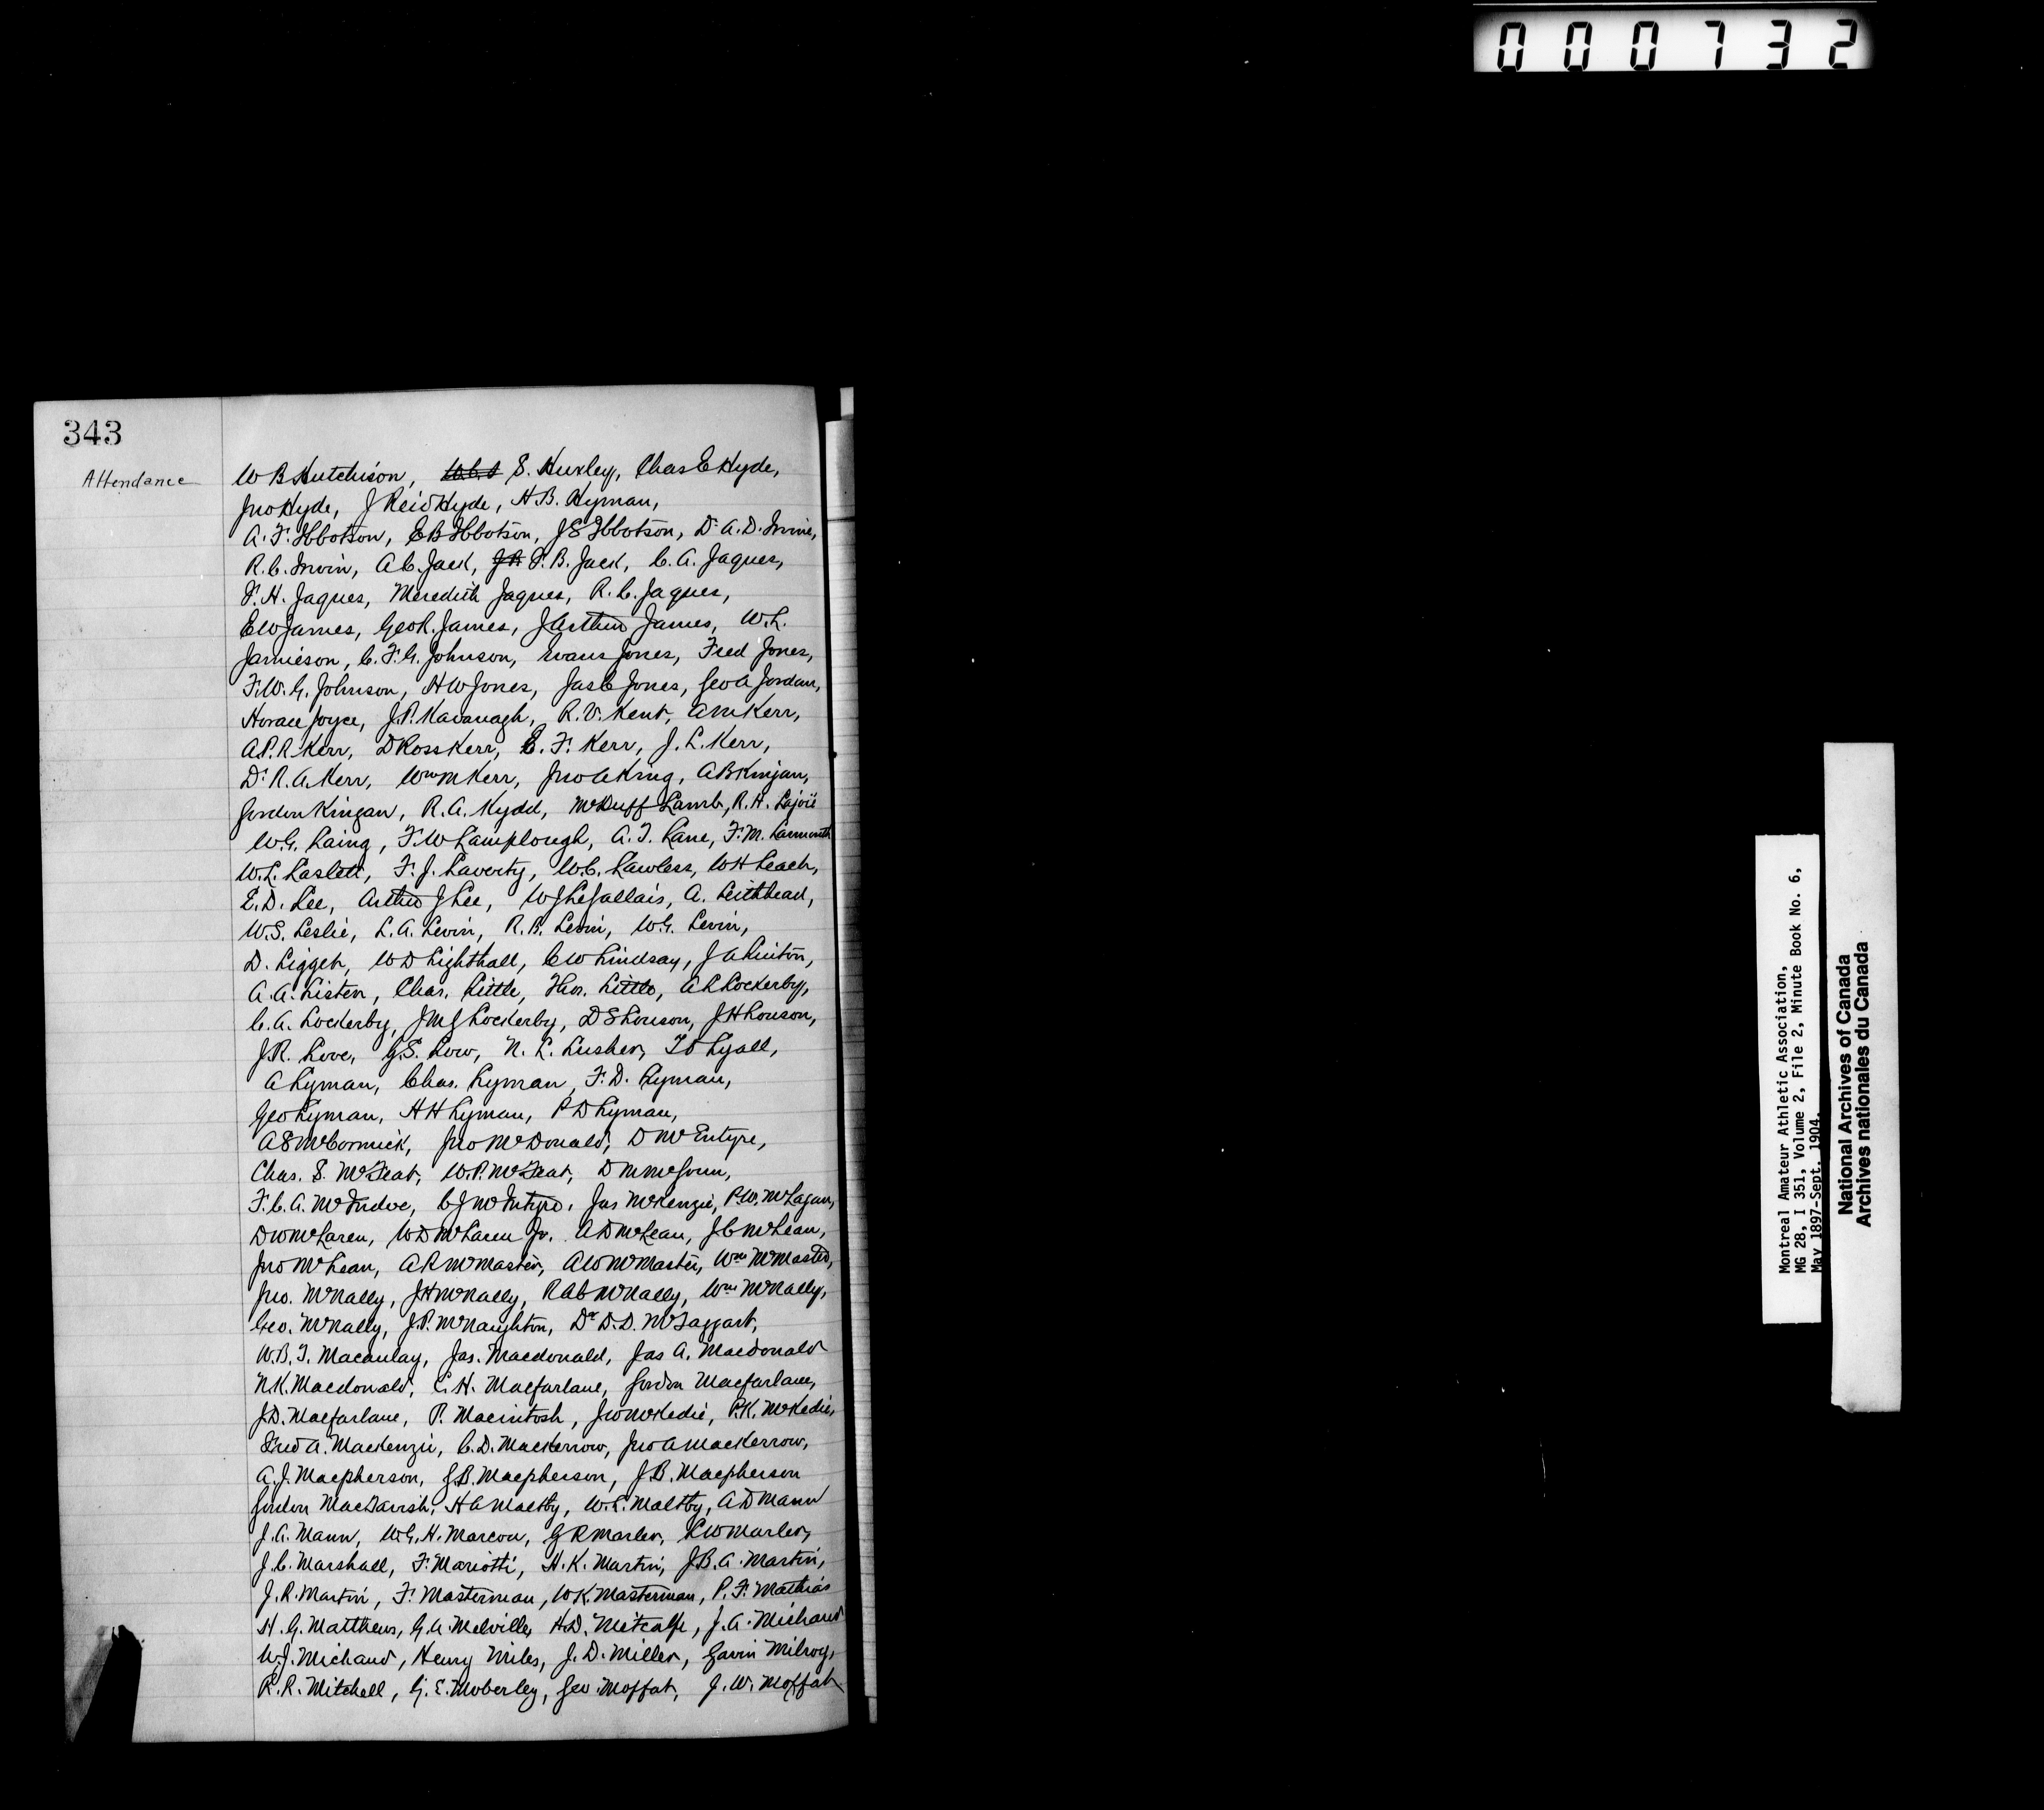 000732
343
Attendance
W B Hutchison, S. Huxley, Chas E Hyde,
Jno Hyde, J Reid Hyde, H.B. Hyman,
A. F. Ibbotson, E B Ibbotson, J S Ibbotson, Dr A. D. Irvine,
R. C. Irwin, A C. Jack, F. B. Jack, C. A. Jaques,
F. H. Jaques, Meredith Jaques, R. C. Jaques,
E W James, Geo R. James, J Arthur James, W. L.
Jamieson, C. F. G. Johnson, Evans Jones, Fred Jones,
F. W. G. Johnson, H W Jones, Jas C Jones, Geo A Jordan,
Horace Joyce, J. P. Kavanagh, R. V. Kent, A M Kerr,
A. P. R. Kerr, D Ross Kerr, E. F. Kerr, J. L. Kerr,
Dr R. A. Kerr, Wm M Kerr, Jno A King, A B Kingan,
Gordon Kingan, R. A. Kydd, McDuff Lamb, R. H. Lajoie
W. G. Laing, F. W Lamplough, A. T. Lane, F. M. Larmonth
W. L. Laslett, F. J. Laverty, W. C. Lawless, W H Leach,
E. D. Lee, Arthur J Lee, W J LeGallais, A. Leithhead,
W. S. Leslie, L. A. Levin, R. B. Levin, W. G. Levin,
D. Ligget, W D Lighthall, C W Lindsay, J A Linton,
A. A. Listen, Chas. Little, Thos. Little, A L Lockerby,
C. A. Lockerby, J M G Lockerby, D S Louson, J H Louson,
J. R. Love, G. S. Low, N. L. Lusher, T O Lyall,
A Lyman, Chas. Lyman, F. D. Lyman,
Geo Lyman, H H Lyman, P D Lyman,
A S McCormick, Jno McDonald, D McEntyre,
Chas. S. McFeat, W. P. McFeat, D M McGoun,
F. C. A. McIndoe, C J McIntyre, Jas McKenzie, P. W. McLagan,
D W McLaren, W D McLaren Jr. A D McLean, J C McLean,
Jno McLean, A R McMaster, A W McMaster, Wm McMaster,
Jno. McNally, J H McNally, R A B McNally, Wm McNally,
Geo. McNally, J. P. McNaughton, Dr D. D. McTaggart,
W. B. T. Macaulay, Jas. Macdonald, Jas A. Macdonald
N. K. Macdonald, C. H. Macfarlane, Gordon Macfarlane,
J. D. Macfarlane, P. Macintosh, J W McKedie, P. K. McKedie,
Fred A. Mackenzie, C. D. Mackerrow, Jno A Mackerrow,
A. J. Macpherson, G. B. Macpherson, J. B. Macpherson
Gordon MacTavish, H A Maltby, W. L. Maltby, A D Mann
J. A. Mann, W. G. H. Marcou, G R Marler, L W Marler,
J. C. Marshall, F. Mariotti, H. K. Martin, J. B. A. Martin,
J. R. Martin, F. Masterman, W K. Masterman, P. F. Mathias
H. G. Matthews, G. A. Melville, H. D. Metcalfe, J. A. Michaud
W. J. Michaud, Henry Miles, J. D. Miller, Gavin Milroy,
R. R. Mitchell, G. E. Moberley, Geo. Moffat, J. W. Moffat
Montreal Amateur Athletic Association,
MG 28, I 351, Volume 2, File 2, Minute Book No. 6,
May 1897-Sept. 1904.
National Archives of Canada
Archives nationales du Canada